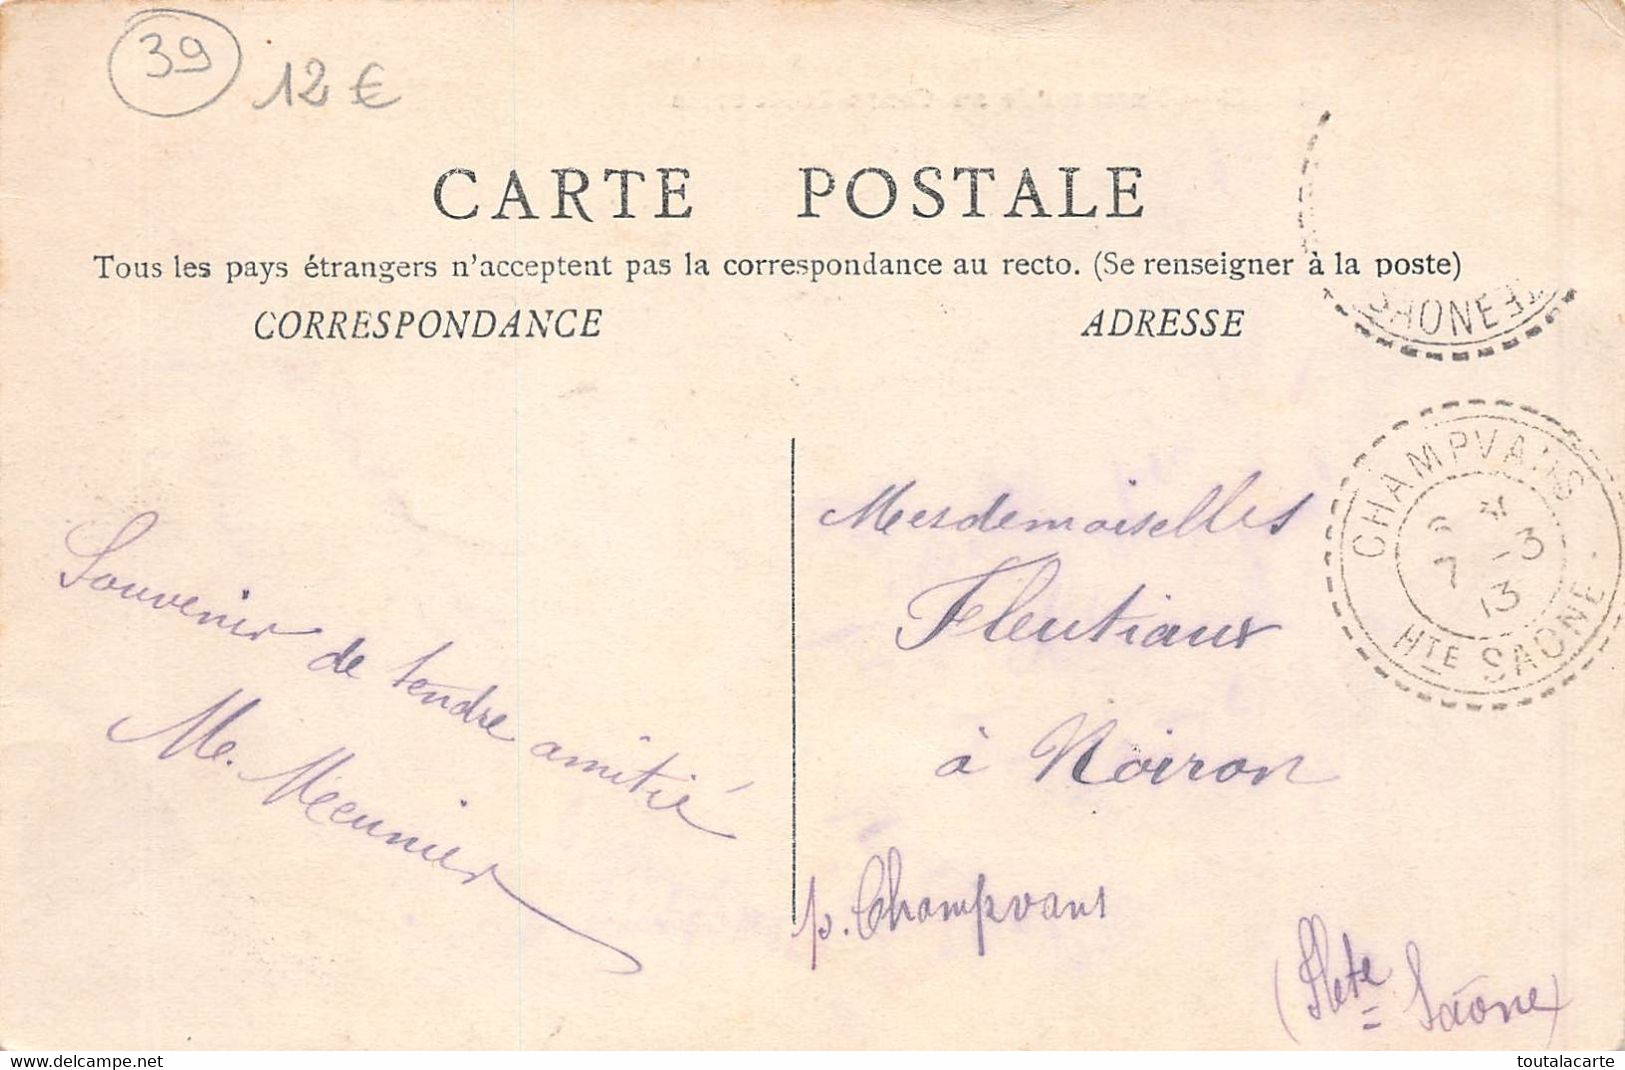 39
12 €
CARTE POSTALE
Tous les pays étrangers n'acceptent pas la correspondance au recto. (Se renseigner à la poste)
CORRESPONDANCE
ADRESSE
SAONE
Souvenir de tendre amitié
M. Meunier
Mesdemoiselles
Fleutiaux
à Noiron
p. Champvans
(Hte Saône)
CHAMPVANS
7 -3
13
HTE SAONE
www.delcampe.net
toutalacarte